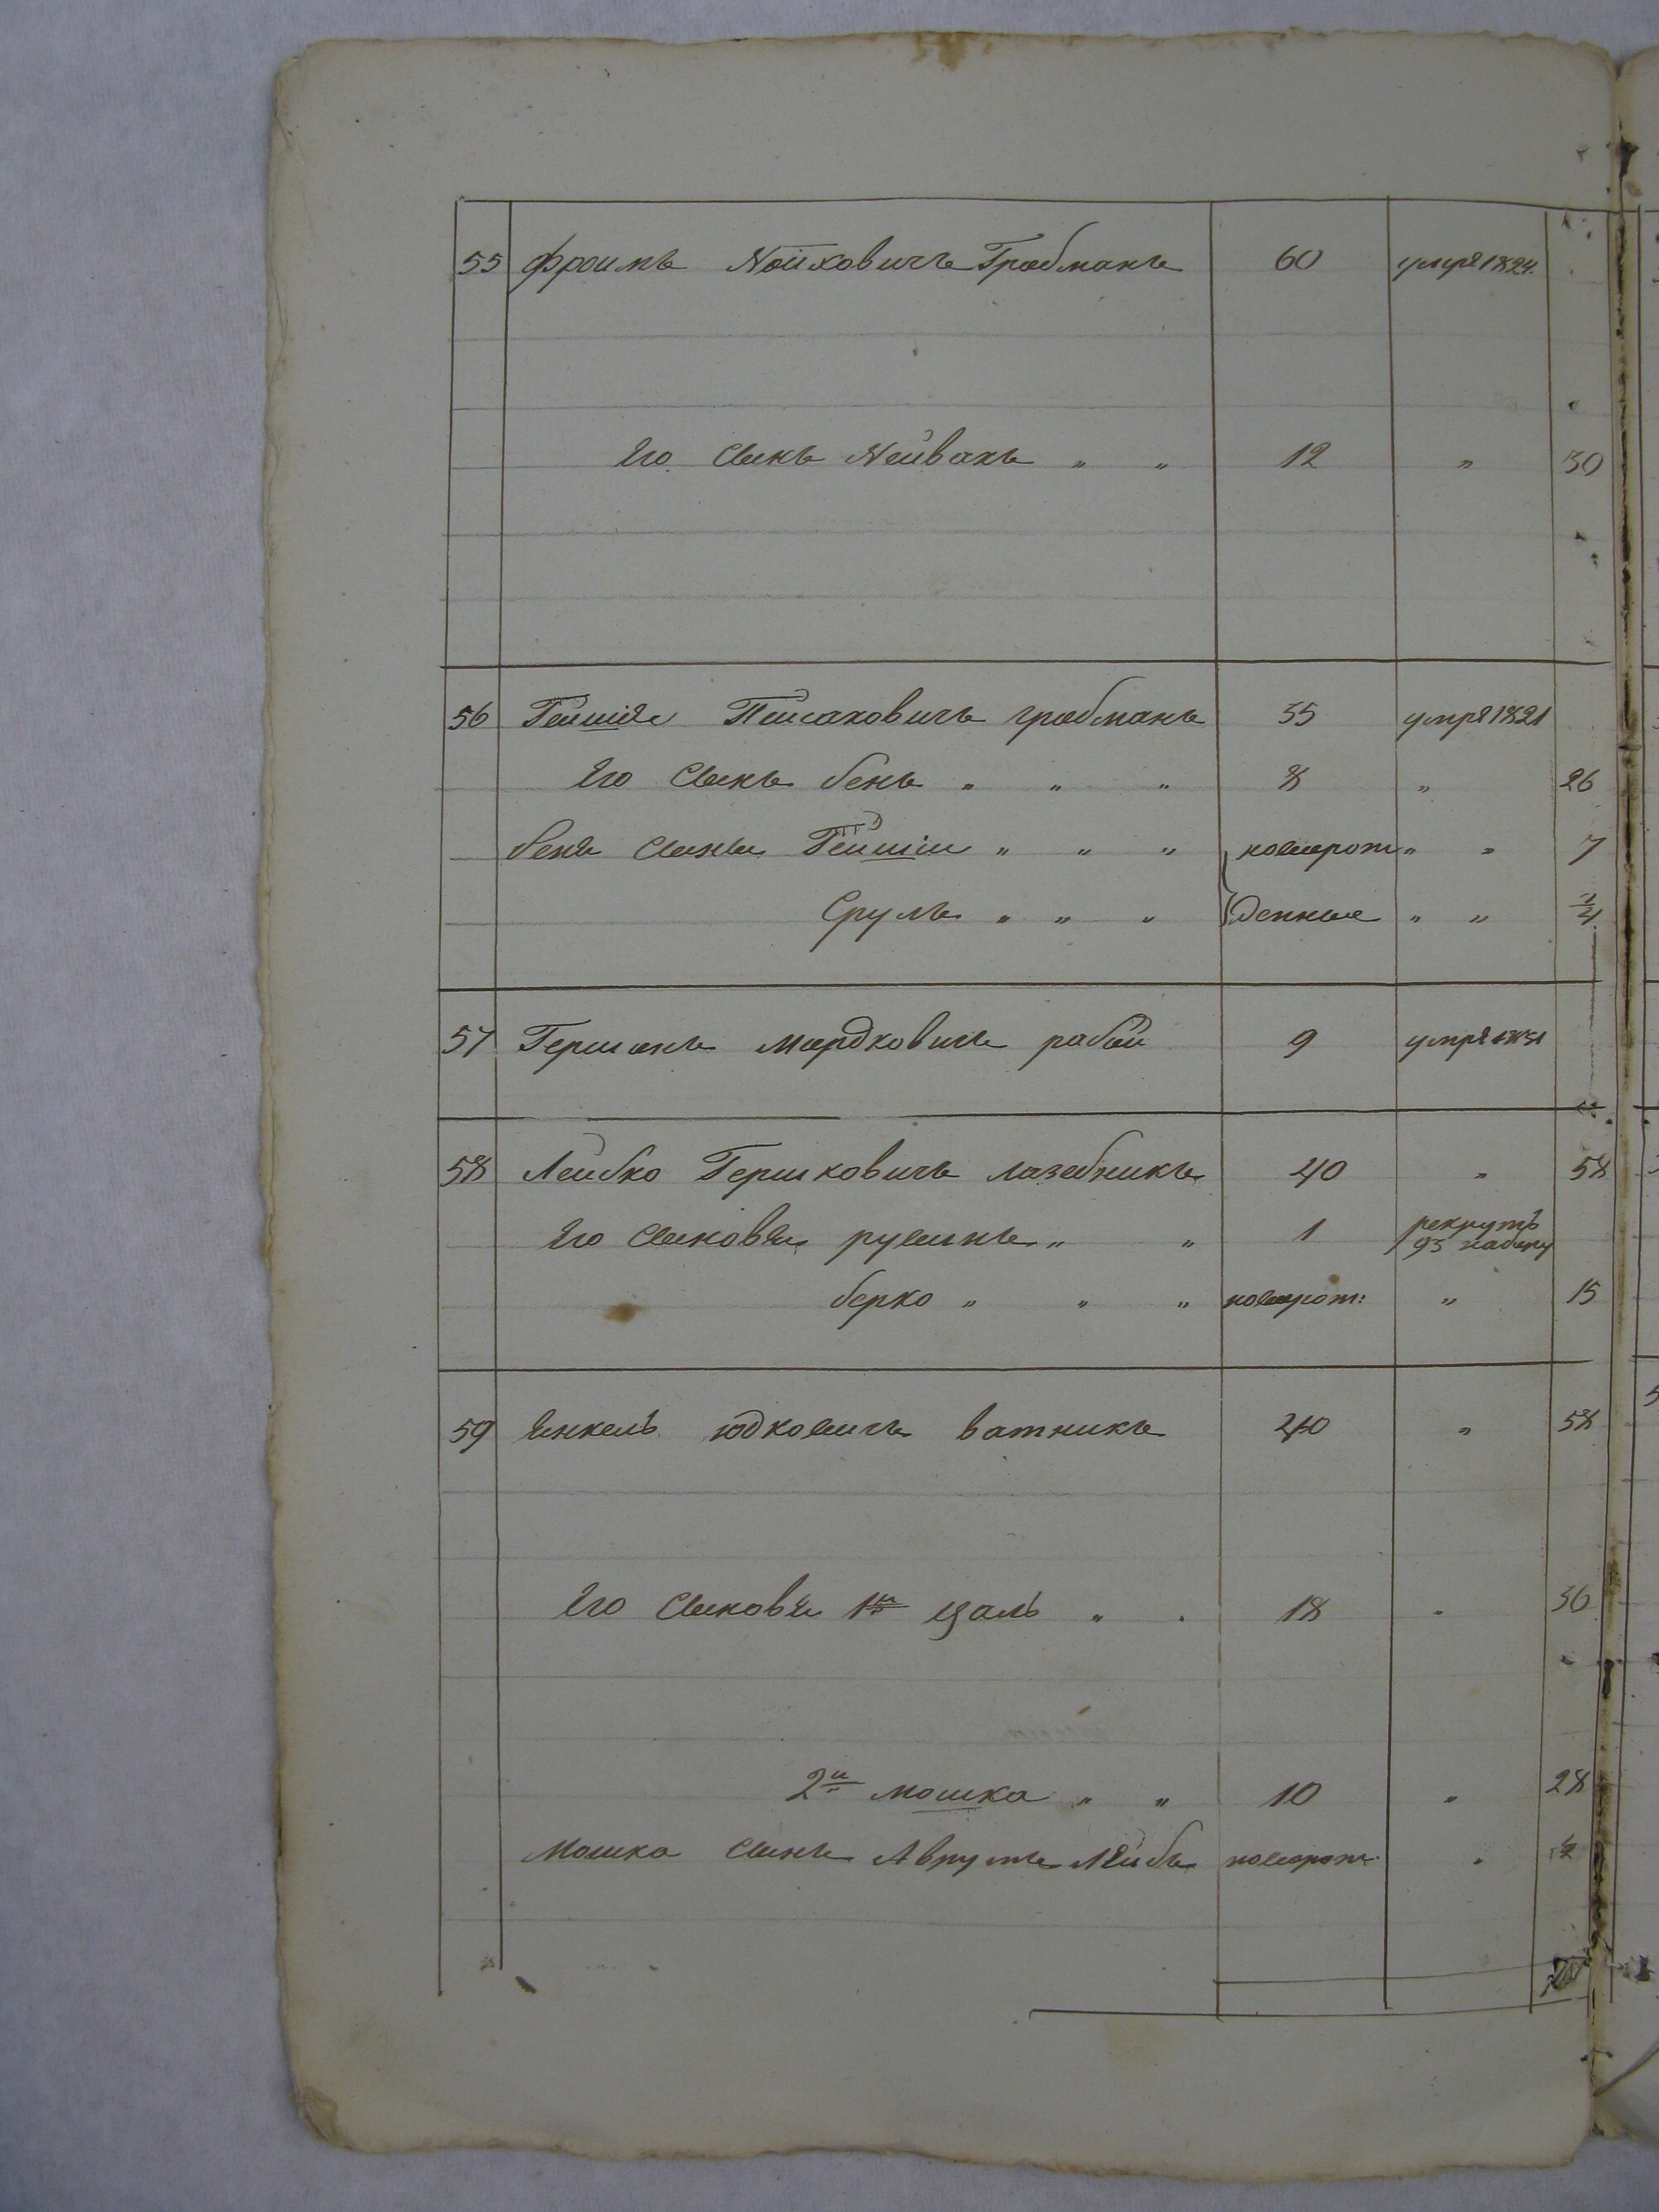 55 Фроимъ Нойховичъ Грабманъ 60 умре 1824.
Его Сынъ Нейвахъ " " 12 " 30
56 Гейшія Пейсаховичъ грабманъ 55 умре 1821
Его Сынъ бень " " " 8 " 26
беня Сыны Гейшія " " " новорож " " 7
Сруль " " " денные " " 1/2
57 Гершонъ Мардковичъ рабой 9 умре 1831
58 Лейбко Гершковичъ лазебникъ 40 " 58
Его Сыновья рувинъ " " 1 рекрутъ
93 набору
берко " " " новорож: " 15
59 Янкель юдковичъ ватникъ 40 " 58
Его Сыновья 1й цаль " " 18 " 36
2й мошка " " 10 " 28
Мошка Сынъ Аврумъ Лейбъ новорож. "